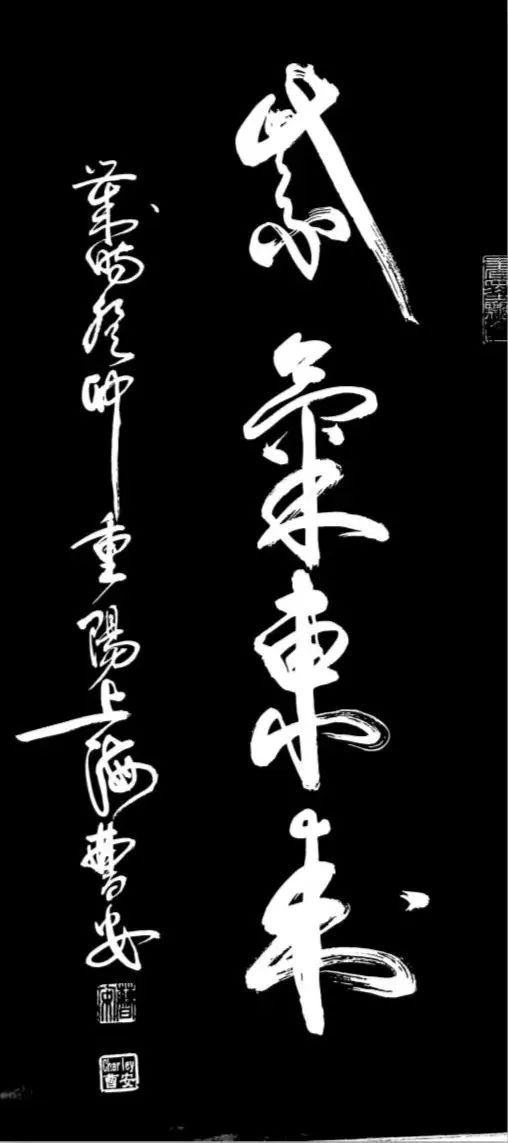 紫氣東來
歲時癸卯重陽上海曹安
Charley
曹安